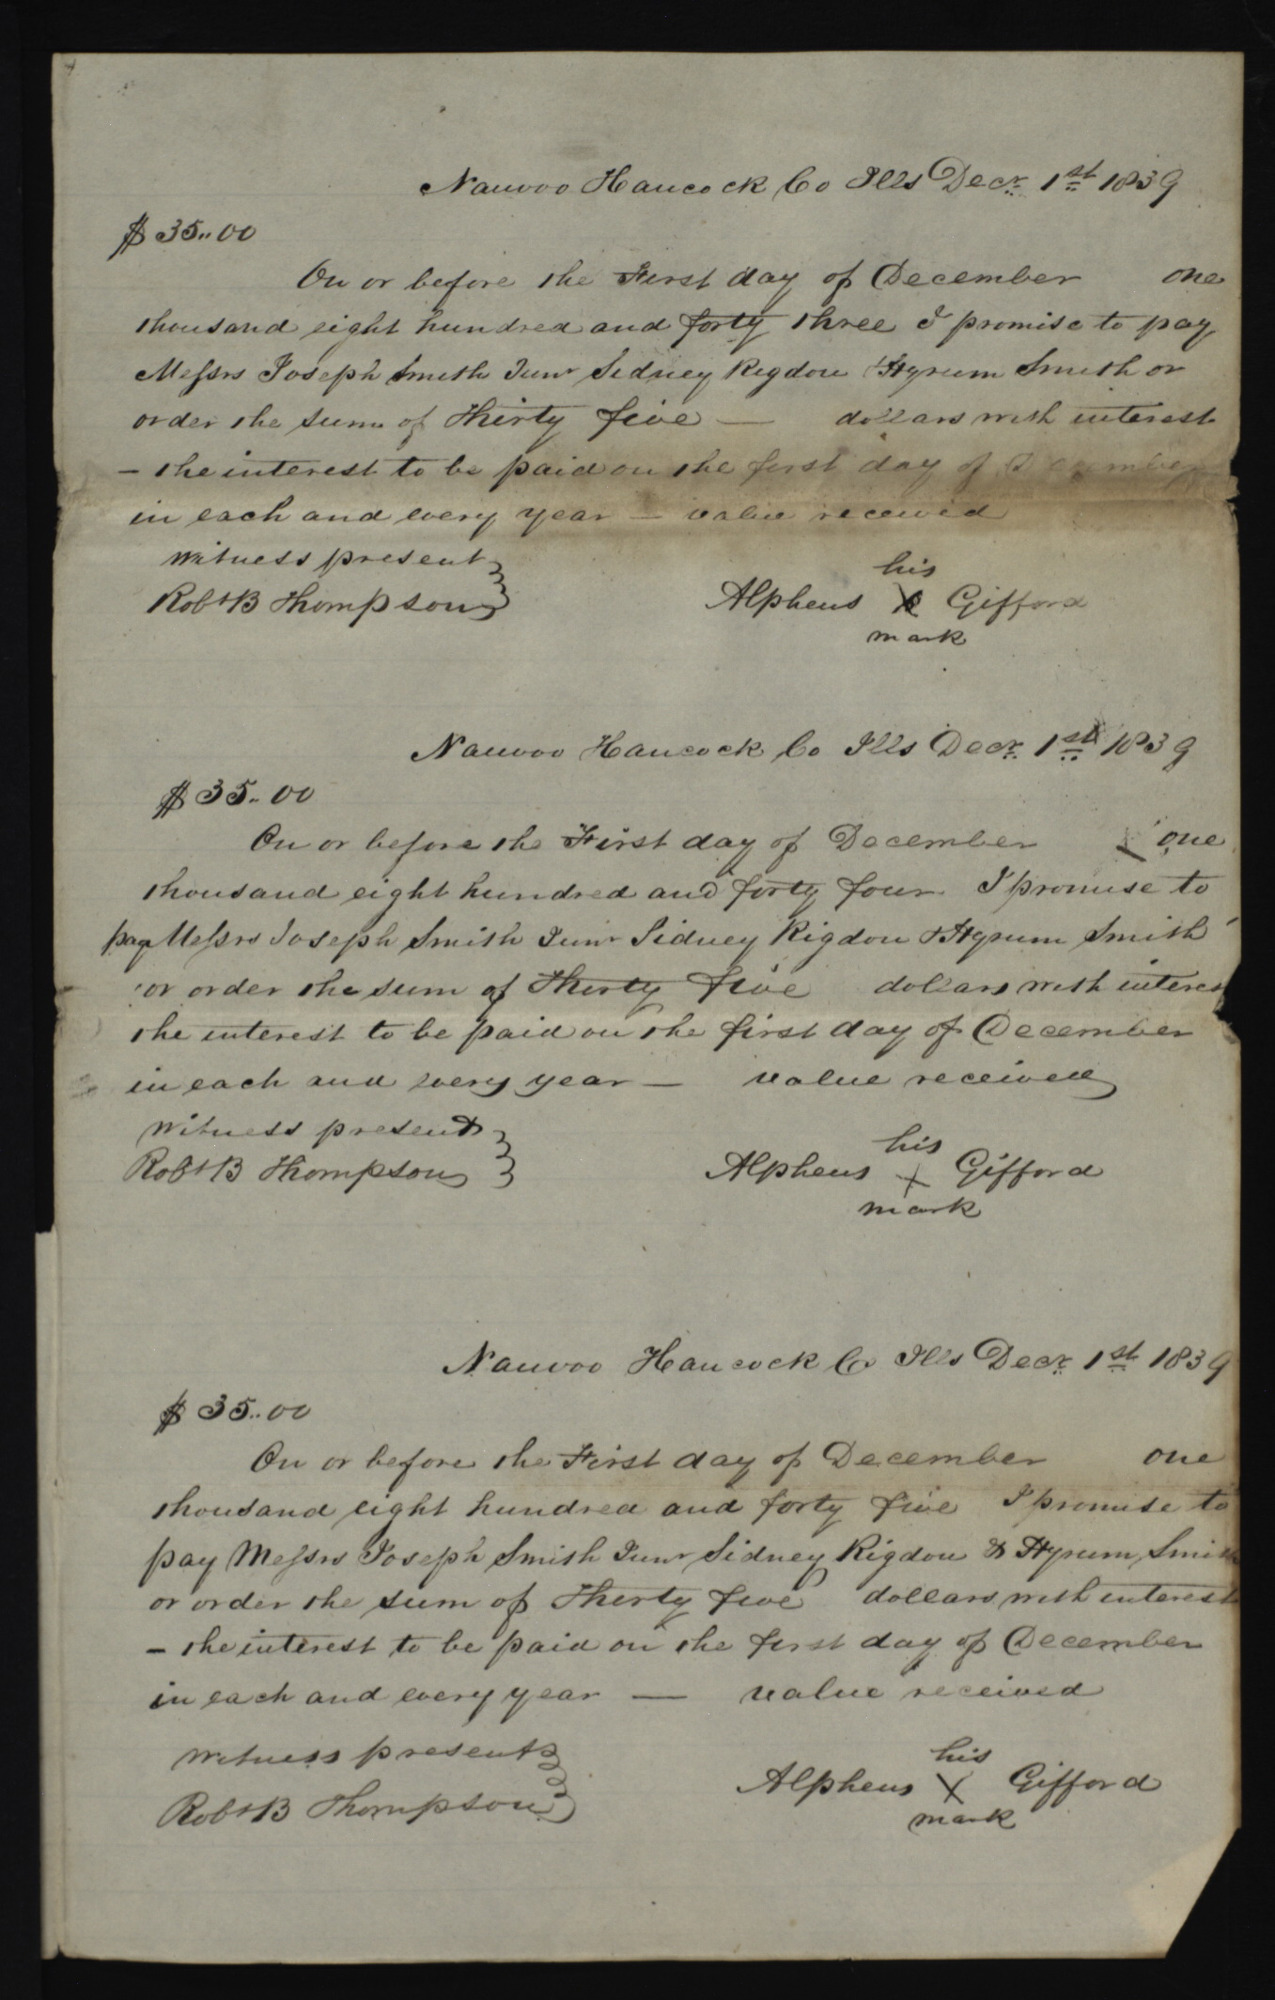 Nauvoo Hancock Co Ills Decr. 1st 1839
$35..00
On or before the First day of December one
thousand eight hundred and forty three I promise to pay
Messrs Joseph Smith Junr Sidney Rigdon & Hyrum Smith or
order the sum of Thirty five — dollars with interest
– the interest to be paid on the first day of December
in each and every year — value received
Witness present
Robt B Thompson
his
Alpheus X Gifford
mark
Nauvoo Hancock Co Ills Decr. 1st 1839
$35..00
On or before the First day of December one
thousand eight hundred and forty four I promise to
pay Messrs Joseph Smith Junr Sidney Rigdon & Hyrum Smith
or order the sum of Thirty five dollars with interest
the interest to be paid on the first day of December
in each and every year — value received
Witness present
Robt B Thompson
his
Alpheus X Gifford
mark
Nauvoo Hancock Co Ills Decr. 1st 1839
$35..00
On or before the First day of December one
thousand eight hundred and forty five I promise to
pay Messrs Joseph Smith Junr Sidney Rigdon & Hyrum Smith
or order the sum of Thirty five dollars with interest
– the interest to be paid on the first day of December
in each and every year — value received
Witness present
Robt B Thompson
his
Alpheus X Gifford
mark